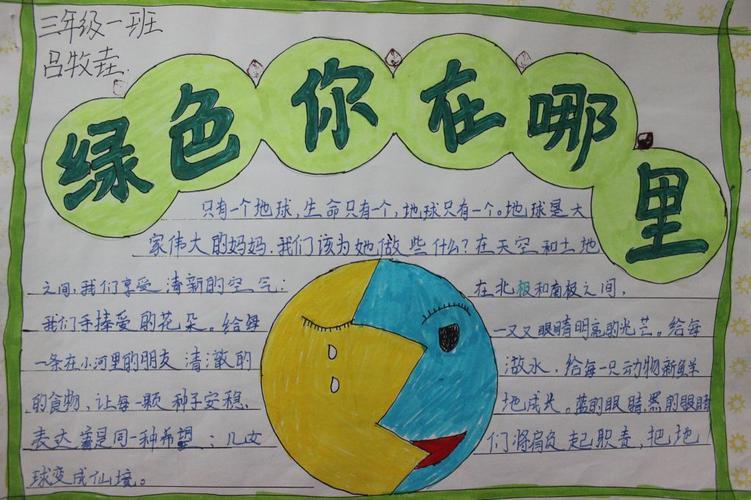 三年级一班
吕牧垚
绿色你在哪里
只有一个地球,生命只有一个,地球只有一个。地球是大
家伟大的妈妈,我们该为她做些什么?在天空和土地
之间,我们享受清新的空气: 在北极和南极之间,
我们手捧爱的花朵。给每 一双又眼睛明亮的光芒。给每
一条在小河里的朋友清澈的 澈水,给每一只动物新鲜
的食物,让每一颗种子安稳 地成长。蓝的眼睛,黑的眼睛
表达 是同一种希望;儿女 们将肩负起职责,把地
球变成仙境。